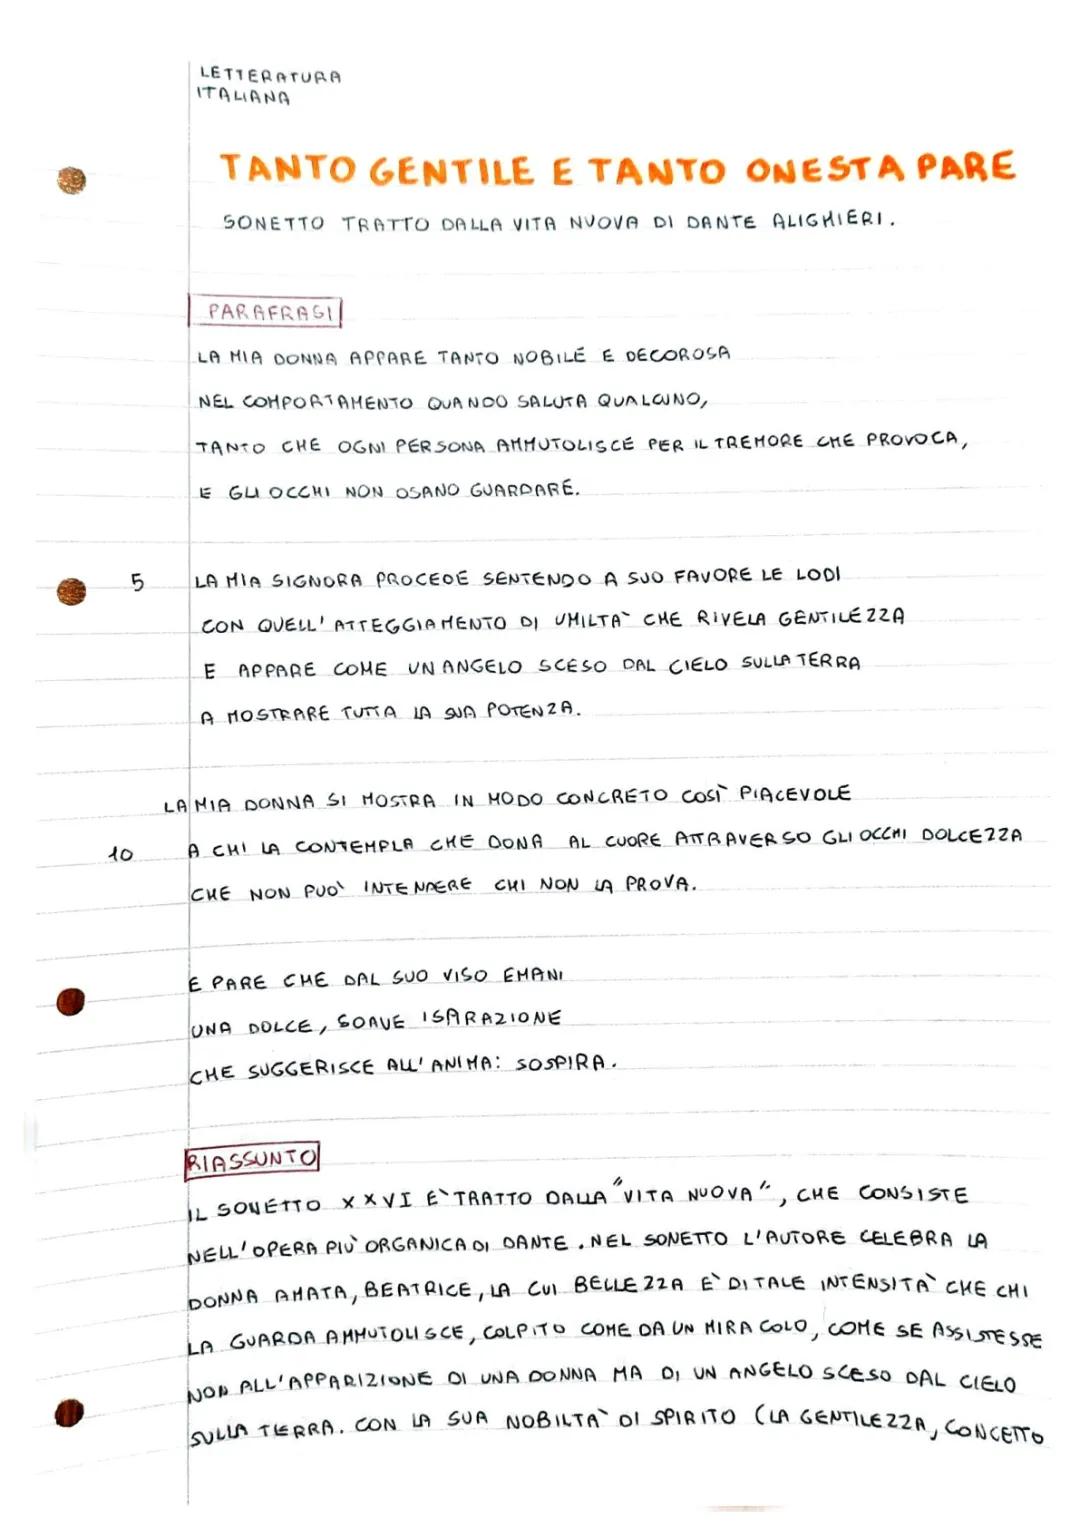 LETTERATURA
ITALIANA
TANTO GENTILE E TANTO ONESTA PARE
SONETTO TRATTO DALLA VITA NUOVA DI DANTE ALIGHIERI.
PARAFRASI
LA MIA DONNA APPARE TANTO NOBILE E DECOROSA
NEL COMPORTAMENTO QUANDO SALUTA QUALCUNO,
TANTO CHE OGNI PERSONA AMMUTOLISCE PER IL TREMORE CHE PROVOCA,
E GLI OCCHI NON OSANO GUARDARE.
5 LA MIA SIGNORA PROCEDE SENTENDO A SUO FAVORE LE LODI
CON QUELL' ATTEGGIAMENTO DI UMILTA' CHE RIVELA GENTILEZZA
E APPARE COME UN ANGELO SCESO DAL CIELO SULLA TERRA
A MOSTRARE TUTTA LA SUA POTENZA.
LA MIA DONNA SI MOSTRA IN MODO CONCRETO COSÌ PIACEVOLE
10 A CHI LA CONTEMPLA CHE DONA AL CUORE ATTRAVERSO GLI OCCHI DOLCEZZA
CHE NON PUO' INTENDERE CHI NON LA PROVA.
E PARE CHE DAL SUO VISO EMANI
UNA DOLCE, SOAVE ISPIRAZIONE
CHE SUGGERISCE ALL' ANIMA: SOSPIRA.
RIASSUNTO
IL SONETTO XXVI E' TRATTO DALLA "VITA NUOVA", CHE CONSISTE
NELL' OPERA PIU' ORGANICA DI DANTE. NEL SONETTO L'AUTORE CELEBRA LA
DONNA AMATA, BEATRICE, LA CUI BELLEZZA E' DI TALE INTENSITA' CHE CHI
LA GUARDA AMMUTOLISCE, COLPITO COME DA UN MIRACOLO, COME SE ASSISTESSE
NON ALL'APPARIZIONE DI UNA DONNA MA DI UN ANGELO SCESO DAL CIELO
SULLA TERRA. CON LA SUA NOBILTA' DI SPIRITO (LA GENTILEZZA, CONCETTO